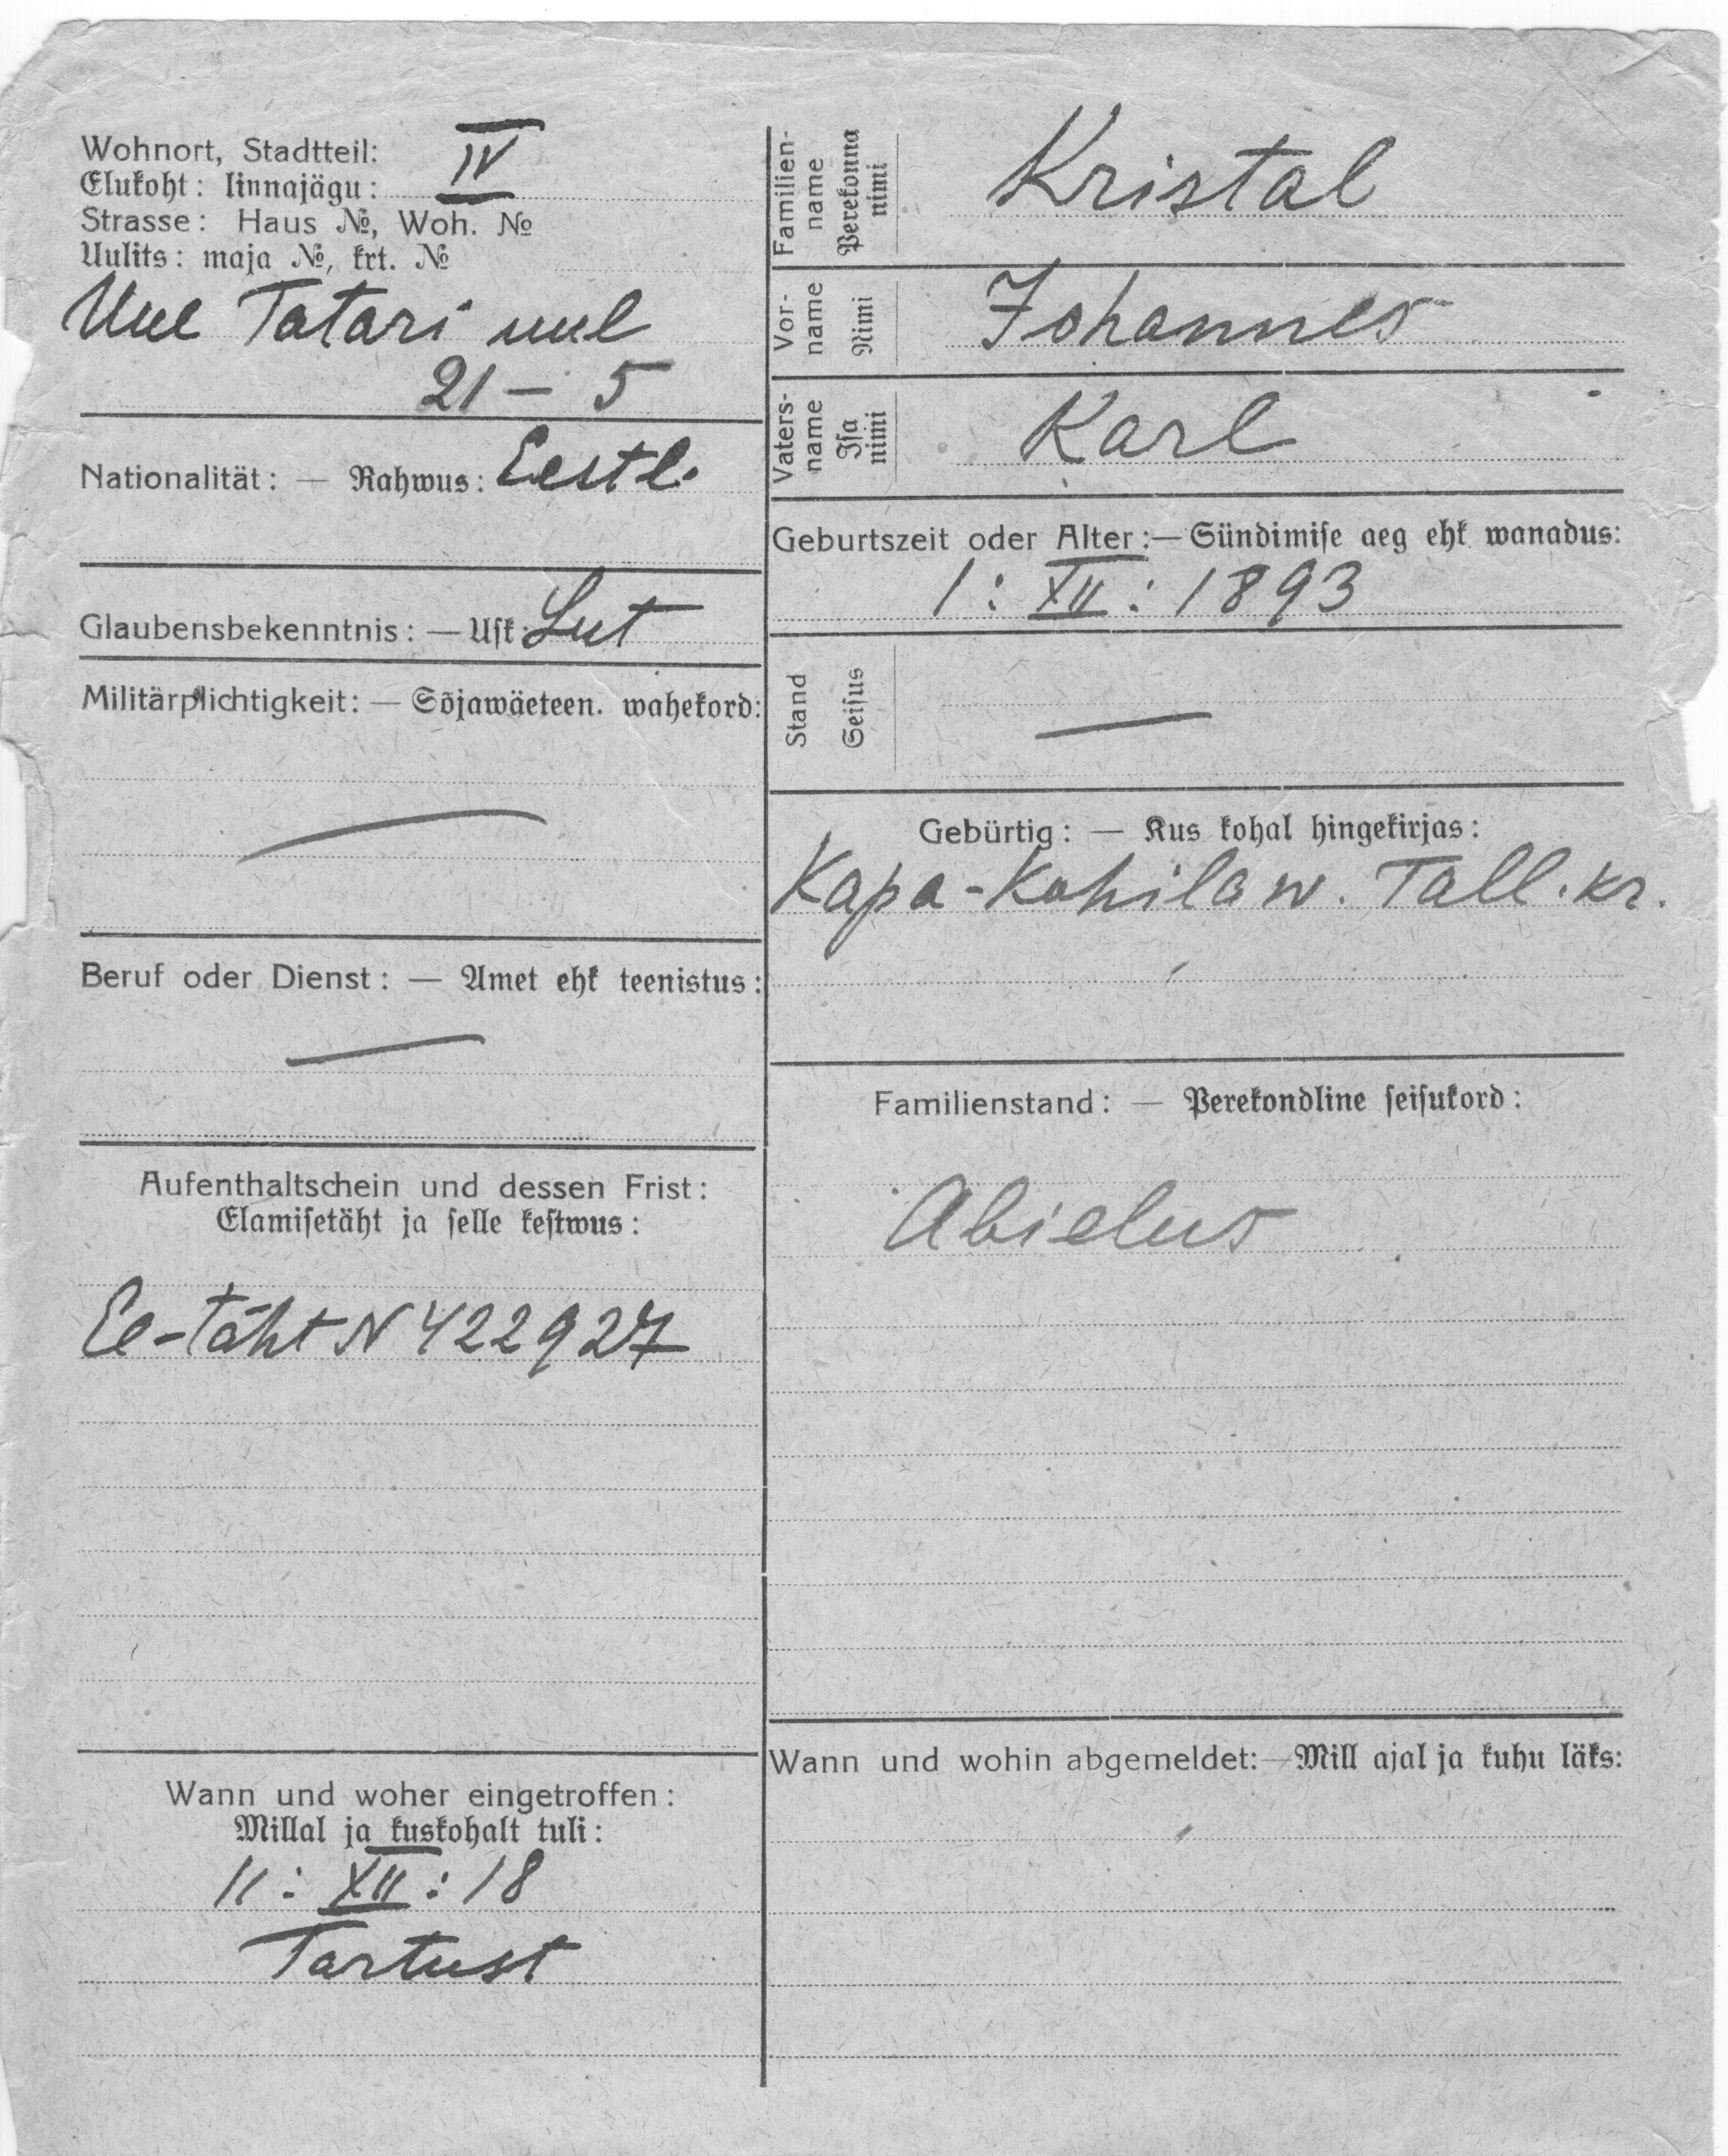 Wohnort, Stadtteil: IV
Elukoht: linnajägu:
Strasse: Haus №, Woh. №
Uulits: maja №, krt. №
Uue Tatari uul
21 - 5
Nationalität: — Rahwus: Eestl.
Glaubensbekenntnis: — Usk: Lut
Militärpflichtigkeit: — Sõjawäeteen. wahekord:
—
Beruf oder Dienst: — Amet ehk teenistus:
—
Aufenthaltschein und dessen Frist:
Elamisetäht ja selle kestwus:
El-täht N 422927
Wann und woher eingetroffen:
Millal ja kuskohalt tuli:
11: XII: 18
Tartust
Familien-
name
Perekonna
nimi
Kristal
Vor-
name
Nimi
Johannes
Vaters-
name
Isa
nimi
Karl
Geburtszeit oder Alter: — Sündimise aeg ehk wanadus:
1: XII: 1893
Stand
Seisus
—
Gebürtig: — Kus kohal hingekirjas:
Kapa-Kohila w. Tall. kr.
Familienstand: — Perekondline seisukord:
Abielus
Wann und wohin abgemeldet: — Mill ajal ja kuhu läks: